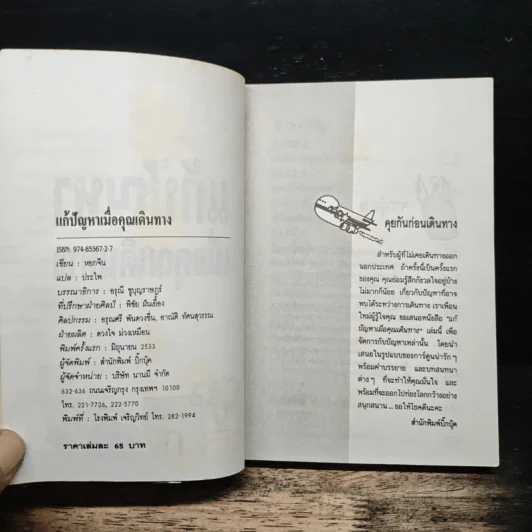 แก้ปัญหาเมื่อคุณเดินทาง
ISBN: 974-85567-2-7
เขียน : หยกจีน
แปล : ประไพ
บรรณาธิการ : อรุณี ชูบุญราษฎร์
ที่ปรึกษาฝ่ายศิลป์ : พิชัย มั่นเยื้อง
ศิลปกรรม : อรุณศรี พันดวงชื่น, อาณัติ ทัศนสุวรรณ
ฝ่ายผลิต : ดวงใจ ม่วงเหมือน
พิมพ์ครั้งแรก : มิถุนายน 2533
ผู้จัดพิมพ์ : สำนักพิมพ์ บิ๊กบุ๊ค
ผู้จัดจำหน่าย : บริษัท นานมี จำกัด
632-636 ถนนเจริญกรุง กรุงเทพฯ 10100
โทร. 221-7726, 222-5770
พิมพ์ที่ : โรงพิมพ์ เจริญวิทย์ โทร. 282-1994
ราคาเล่มละ 65 บาท
คุยกันก่อนเดินทาง
สำหรับผู้ที่ไม่เคยเดินทางออก
นอกประเทศ ถ้าครั้งนี้เป็นครั้งแรก
ของคุณ คุณย่อมรู้สึกกังวลใจอยู่บ้าง
ไม่มากก็น้อย เกี่ยวกับปัญหาที่อาจ
พบได้ระหว่างการเดินทาง เราเพื่อน
ใหม่ผู้รู้ใจคุณ ขอเสนอหนังสือ "แก้
ปัญหาเมื่อคุณเดินทาง" เล่มนี้ เพื่อ
จัดการกับปัญหาเหล่านั้น โดยนำ
เสนอในรูปแบบของการ์ตูนน่ารักๆ
พร้อมคำบรรยาย และบทสนทนา
ต่างๆ ที่จะทำให้คุณมั่นใจ และ
พร้อมที่จะออกไปท่องโลกกว้างอย่าง
สนุกสนาน ... ขอให้โชคดีนะคะ
สำนักพิมพ์บิ๊กบุ๊ค